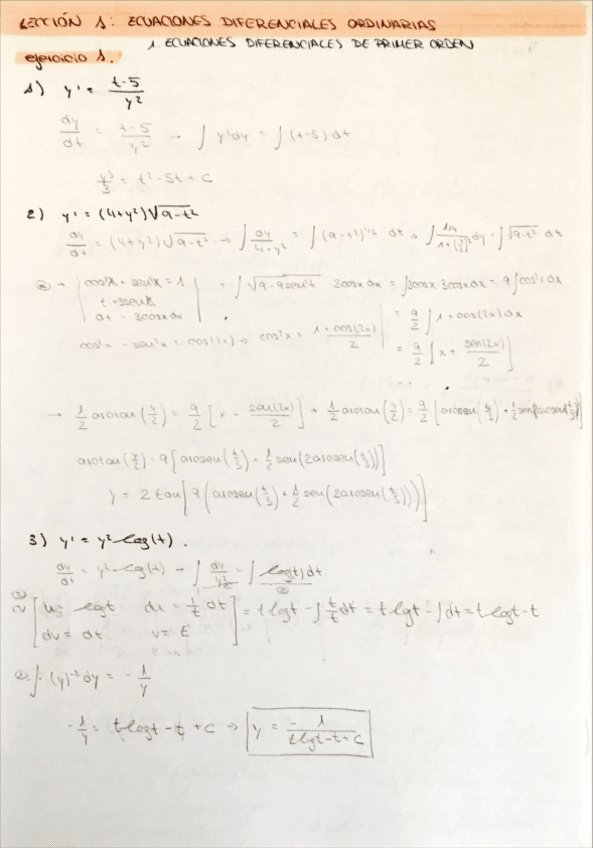 LECCIÓN 1: ECUACIONES DIFERENCIALES ORDINARIAS
1. ECUACIONES DIFERENCIALES DE PRIMER ORDEN
ejercicio 1.
1) y' = (t-5)/y²
dy/dt = (t-5)/y² → ∫ y²dy = ∫ (t-5) dt
y³/3 = t² - 5t + C
2) y' = (4+y²)√(9-t²)
dy/dt = (4+y²)√(9-t²) → ∫ dy/(4+y²) = ∫ (9-t²)^(1/2) dt → ∫ (1/4)/(1+(y/2)²) dy = ∫ √(9-t²) dt
cos²x + sen²x = 1
t = 3senx
dt = 3cosx dx
∫ √(9-9sen²t) 3cosx dx = ∫3cosx·3cosx dx = 9∫cos²x dx
cos²x - sen²x = cos(2x) → cos²x = (1+cos(2x))/2
= 9/2 ∫ 1+cos(2x) dx
= 9/2 [x + sen(2x)/2]
→ 1/2 arctan(y/2) = 9/2 [x + sen(2x)/2] → 1/2 arctan(y/2) = 9/2 [arcsen(t/3) + 1/2 sen(2arcsen(t/3))]
arctan(y/2) = 9[arcsen(t/3) + 1/2 sen(2arcsen(t/3))]
y = 2 tan[9(arcsen(t/3) + 1/2 sen(2arcsen(t/3)))]
3) y' = y² log(t).
dy/dt = y² log(t) → ∫ dy/y² = ∫ log(t) dt
[u = logt du = 1/t dt
dv = dt v = t] = t logt - ∫ t/t dt = t logt - ∫dt = t logt - t
∫ (y)⁻² dy = - 1/y
-1/y = t logt - t + C → y = - 1/(t logt - t + C)